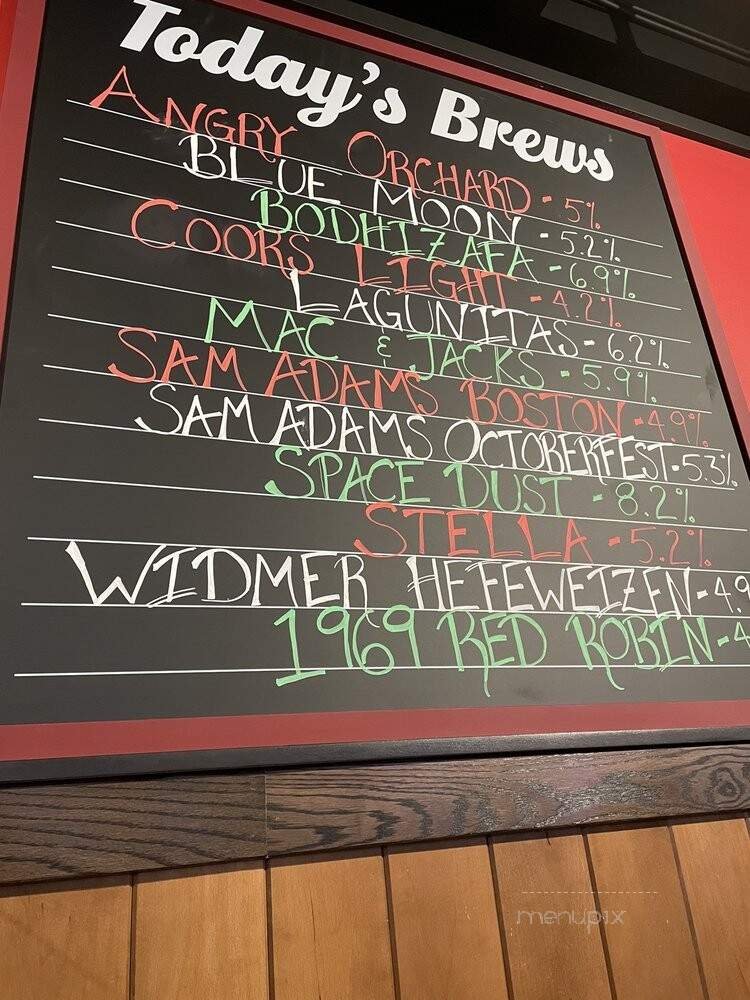 Today's Brews
ANGRY ORCHARD - 5%
BLUE MOON - 5.2%
BODHIZAFA - 6.9%
COORS LIGHT - 4.2%
LAGUNITAS - 6.2%
MAC & JACKS - 5.9%
SAM ADAMS BOSTON - 4.9%
SAM ADAMS OCTOBERFEST - 5.3%
SPACE DUST - 8.2%
STELLA - 5.2%
WIDMER HEFEWEIZEN - 4.9
1969 RED ROBIN - 4
menupix